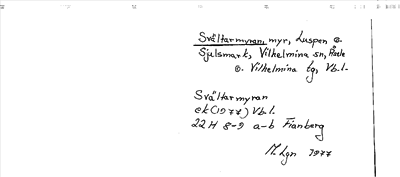 Svältarmyran, myr, Luspen o.
Sjulsmark, Vilhelmina sn, Åsele
o. Vilhelmina tg, Vb.l.
Svältarmyran
ek (1977) Vb.l.
22H 8-9 a-b Fianberg
M. Lgn 1977